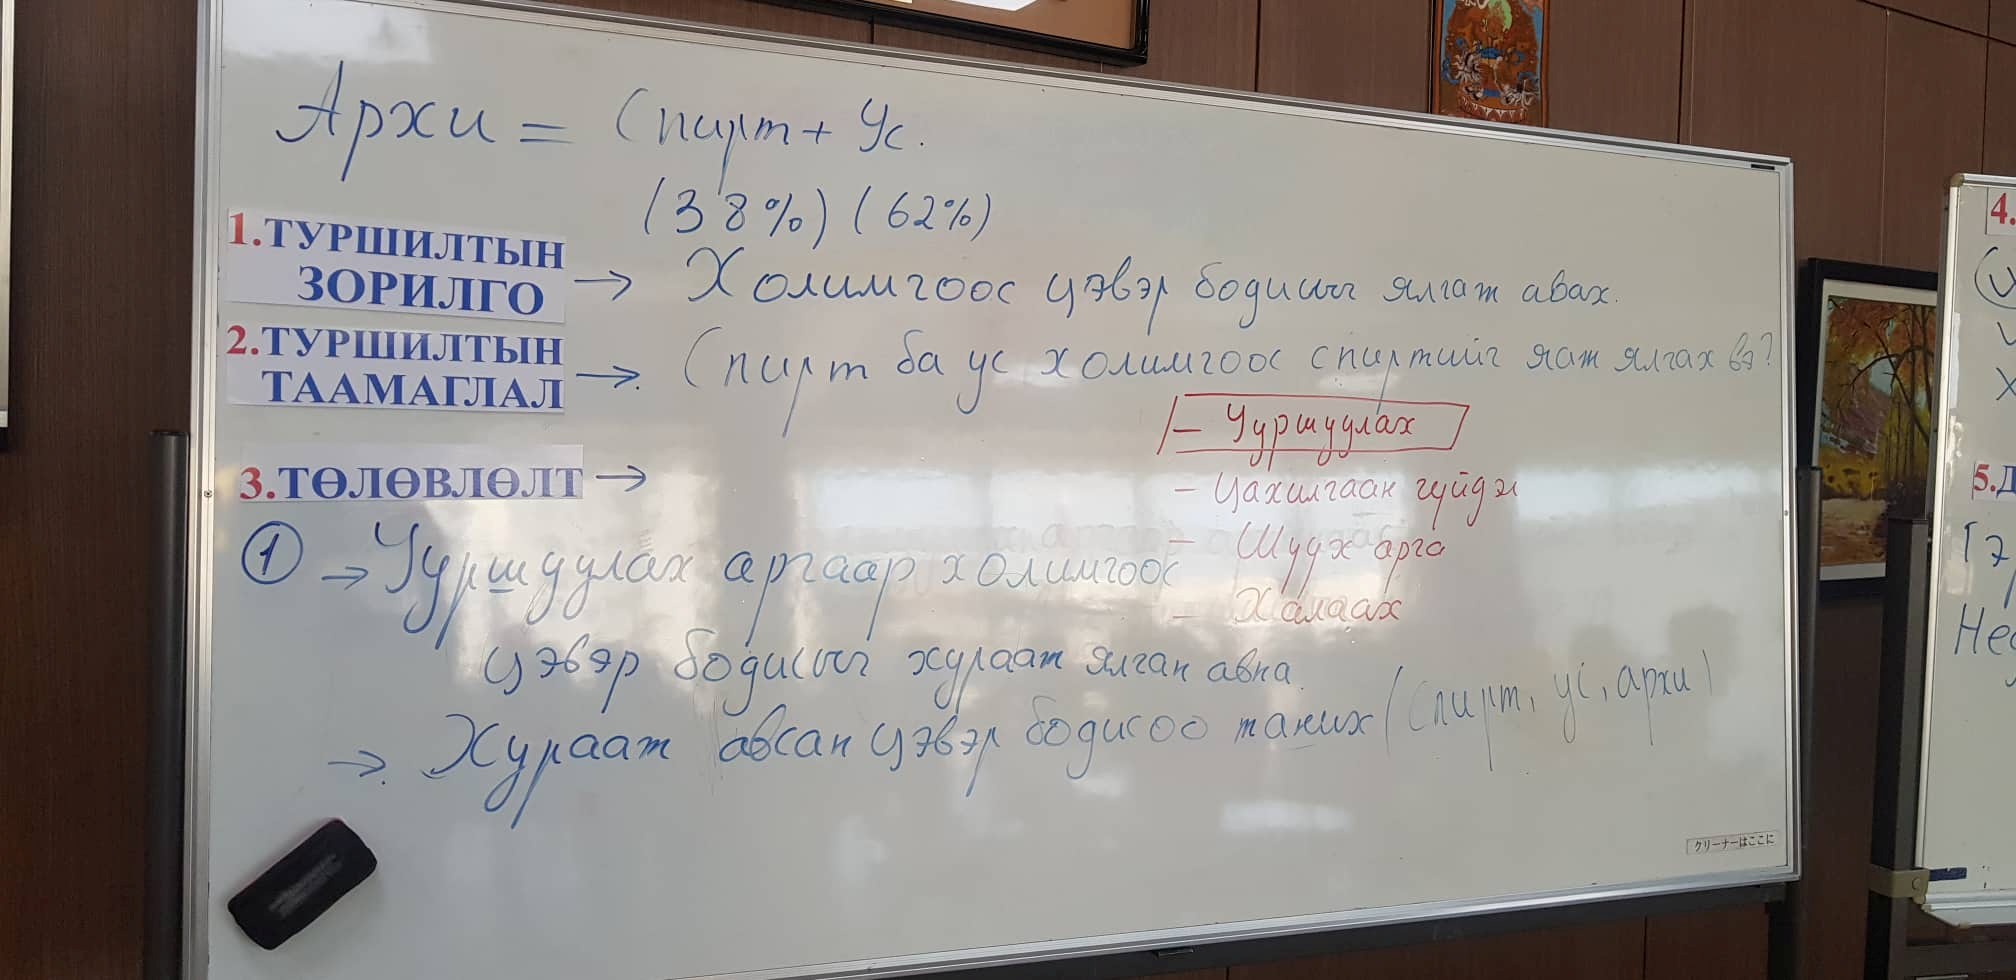 Архи = Спирт + Ус.
(38%) (62%)
1.ТУРШИЛТЫН
ЗОРИЛГО → Холимгоос цэвэр бодисыг ялгаж авах.
2.ТУРШИЛТЫН
ТААМАГЛАЛ → Спирт ба ус холимгоос спиртийг яаж ялгах вэ?
- Ууршуулах
- Цахилгаан гүйдэл
- Шүүх арга
- Халаах
3.ТӨЛӨВЛӨЛТ →
1 → Ууршуулах аргаар холимгоос
цэвэр бодисыг хураат ялган авна.
→ Хураат авсан цэвэр бодисоо таних (Спирт, ус, архи)
クリーナーはここに
4.
5.Д